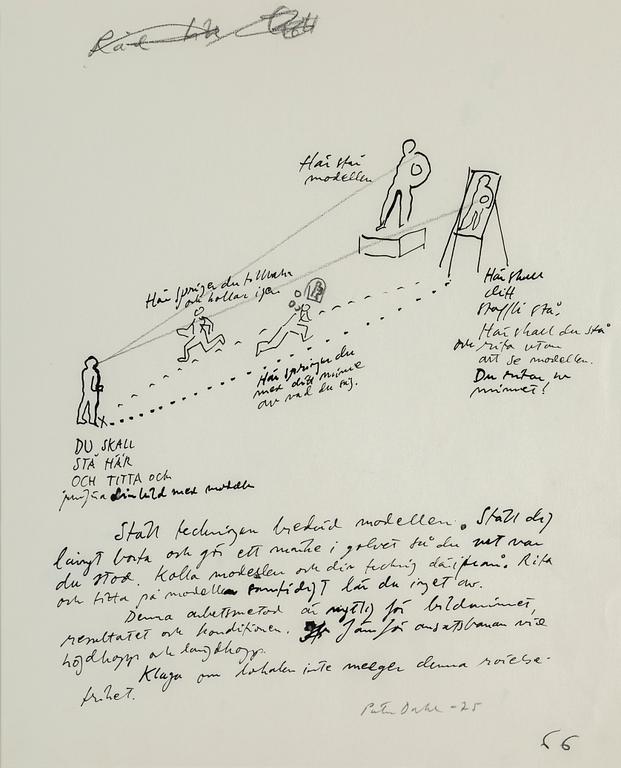 Råd till
Här står
modellen
Här springer du tillbaka
och kollar igen
Här springer du
med ditt minne
av vad du såg.
Här skall
ditt
staffli stå.
Här skall du stå
och rita utan
att se modellen.
Du ritar ur
minnet!
DU SKALL
STÅ HÄR
OCH TITTA och
jämföra din bild med modellen
Ställ teckningen bredvid modellen. Ställ dig
långt borta och gör ett märke i golvet så du vet var
du stod. Kolla modellen och din teckning därifrån. Rita
och titta på modellen samtidigt lär du inget av.
Denna arbetsmetod är nyttig för bildminnet,
resultatet och konditionen. Jämför ansatsbanan vid
höjdhopp och längdhopp.
Klaga om lokalen inte medger denna rörelse-
frihet.
Peter Dahl -25
66